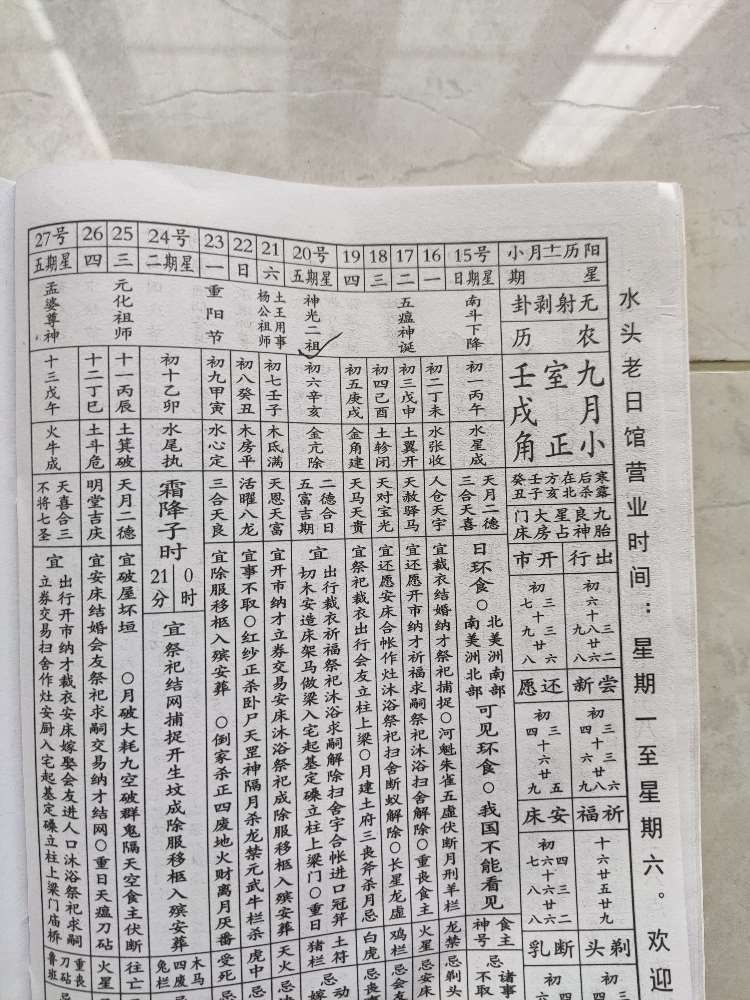 水头老日馆营业时间：星期一至星期六。欢迎
阳历十月小
星期
无射剥卦
农历
九月小
室正
壬戌角
寒露
后杀在北
方亥壬子癸丑
九胎良神星占大房门床
出行
初六十八廿六
三九八二
开市
初七十九廿八
三三八
尝新
初四十六廿九
三三八六
还愿
初四十六廿九
三五
祈福
十六廿五廿九
安床
初七六十八廿八
四三六二
剃头
断乳
15号
星期日
南斗下降
初一丙午
水星成
天月二德
三合天喜
日环食○北美洲南部
南美洲北部
可见环食○我国不能看见
食主
神号
诸事不取
16
一
初二丁未
水张收
人仓天宇
宜裁衣结婚纳才祭祀捕捉○河魁朱雀五虚伏断月刑羊栏
龙禁
忌剃头
17
二
五瘟神诞
初三戊申
土翼开
天赦驿马
宜还愿开市纳才祈福求嗣祭祀沐浴扫舍解除○重丧食主
火星
忌安床
18
三
初四己酉
土轸闭
天对宝光
宜还愿安床合帐作灶沐浴祭祀扫舍断蚁解除○长星龙虚
鸡栏
忌会友
19
四
初五庚戌
金角建
天马天贵
宜祭祀裁衣出行会友立柱上梁○月建土府三丧斧杀月忌
白虎
忌丧
20号
星期五
神光二祖
初六辛亥
金亢除
二德合日
五富吉期
宜出行裁衣祈福祭祀沐浴求嗣解除扫舍宇合帐进口冠笄
切木安造床架马做梁入宅起基定磉立柱上梁门○重日
土符
猪栏
忌动
21
六
土王用事
杨公祖师
初七壬子
木氐满
天恩天富
宜开市纳才立券交易安床沐浴祭祀成除服移柩入殡安葬
天火
22
日
初八癸丑
木房平
活曜八龙
宜事不取○红纱正杀卧尸天罡神隔月杀龙禁元武牛栏杀
虎中
23
一
重阳节
初九甲寅
水心定
三合天良
宜除服移柩入殡安葬○倒家杀正四废地火财离月厌番
受死
24号
星期二
初十乙卯
水尾执
霜降子时
0时
21分
宜祭祀结网捕捉开生坟成除服移柩入殡安葬
木马
四废
兔栏
25
三
元化祖师
十一丙辰
土箕破
天月二德
宜破屋坏垣○月破大耗九空破群鬼隔天空食主伏断
往亡
26
四
十二丁巳
土斗危
明堂吉庆
宜安床结婚会友祭祀求嗣交易纳才结网○重日天瘟刀砧
火星
27号
星期五
孟婆尊神
十三戊午
火牛成
天喜合三
不将七圣
宜出行开市纳才裁衣安床嫁娶会友进人口沐浴祭祀求嗣
立券交易扫舍作灶安厨入宅起基定磉立柱上梁门庙桥
重丧
刀砧
鲁班